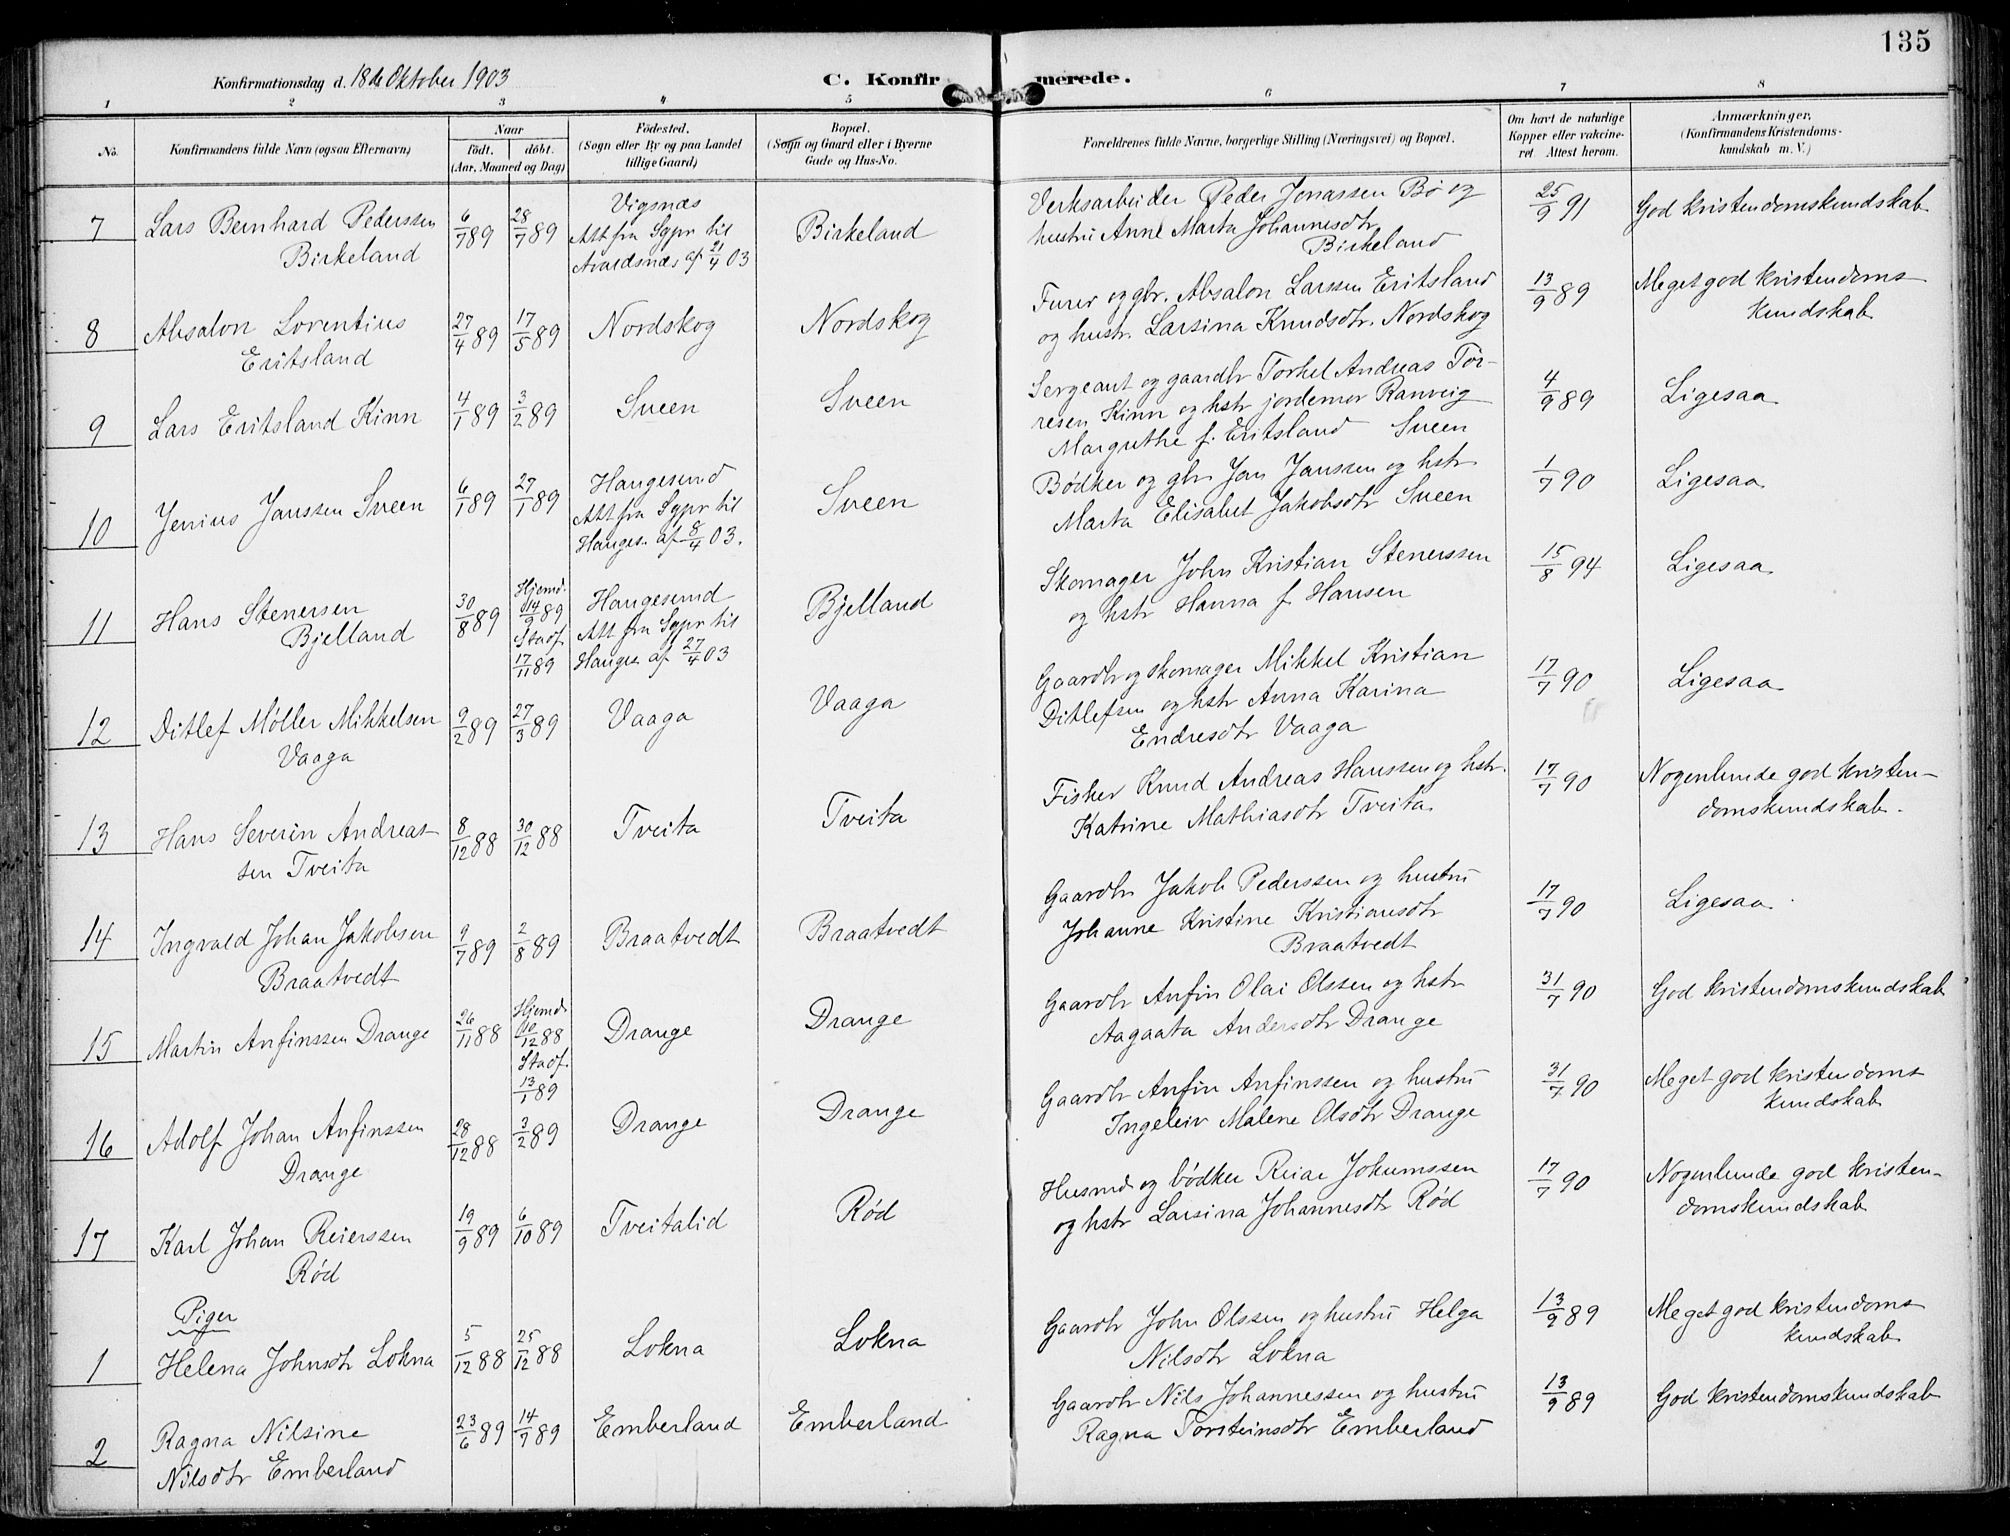 135
Konfirmationsdag d. 18de Oktober 1903
C. Konfirmerede.
1 2 3 4 5 6 7 8
No.
Konfirmandens fulde Navn (ogsaa Efternavn)
Naar
født. døbt.
(Aar, Maaned og Dag)
Fødested.
(Sogn eller By og paa Landet
tillige Gaard)
Bopæl.
(Sogn og Gaard eller i Byerne
Gade og Hus-No.
Forældrenes fulde Navne, borgerlige Stilling (Næringsvei) og Bopæl.
Om havt de naturlige
Kopper eller vakcine-
ret. Attest herom.
Anmærkninger.
(Konfirmandens Kristendoms-
kundskab m. V.)
7
Lars Bernhard Pederssen
Birkeland
6/7 89
28/7 89
Vigsnæs
Att fra Sgpr til
Avaldsnæs af 21/4 03
Birkeland
Verksarbeider Peder Jonassen Bø og
hustru Anne Marta Johannesdtr
Birkeland
25/9 91
God kristendomskundskab
8
Absalon Lorentius
Eritsland
27/4 89
17/5 89
Nordskog
Nordskog
Furer og gbr. Absalon Larssen Eritsland
og hustr. Larsina Knudsdtr. Nordskog
13/9 89
Meget god kristendoms
kundskab
9
Lars Eritsland Kinn
4/1 89
3/2 89
Sveen
Sveen
Sergeant og gaardbr Torkel Andreas Tor-
resen Kinn og hstr jordemor Ranveig
Margrethe f. Eritsland Sveen
4/9 89
Ligesaa
10
Jenius Janssen Sveen
6/1 89
27/1 89
Haugesund
Att fra Sgpr til
Hauges. af 8/4 03.
Sveen
Bødker og gbr Jan Janssen og hstr
Marta Elisabet Jakobsdtr Sveen
1/7 90
Ligesaa
11
Hans Stenersen
Bjelland
30/8 89
Hjemd.
14/9 89
Stadf.
17/11 89
Haugesund
Att fra Sgpr til
Hauges. af 27/4 03
Bjelland
Skomager John Kristian Stenerssen
og hstr Hanna f. Hansen
15/8 94
Ligesaa
12
Ditlef Møller Mikkelsen
Vaaga
9/2 89
27/3 89
Vaaga
Vaaga
Gaardbr og skomager Mikkel Kristian
Ditlefsen og hstr Anna Karina
Endresdtr Vaaga
17/7 90
Ligesaa
13
Hans Severin Andreas-
sen Tveita
8/12 88
30/12 88
Tveita
Tveita
Fisker Knud Andreas Hanssen og hstr.
Katrine Mathiasdtr Tveita
17/7 90
Nogenlunde god kristen-
domskundskab.
14
Ingvald Johan Jakobsen
Braatvedt
9/7 89
2/8 89
Braatvedt
Braatvedt
Gaardbr Jakob Pederssen og hustru
Johanne Kristine Kristiansdtr
Braatvedt
17/7 90
Ligesaa
15
Martin Anfinssen Drange
26/11 88
Hjemd.
10/12 88
Stadf.
13/1 89
Drange
Drange
Gaardbr Anfin Olai Olssen og hstr
Aagaata Andersdtr Drange
31/7 90
God kristendomskundskab
16
Adolf Johan Anfinssen
Drange
28/12 88
3/2 89
Drange
Drange
Gaardbr Anfin Anfinssen og hustru
Ingeleiv Malene Olsdtr Drange
31/7 90
Meget god kristendoms
kundskab
17
Karl Johan Reierssen
Rød
19/9 89
6/10 89
Tveitalid
Rød
Husmd og bødker Reiar Jokumssen
og hstr Larsina Johannesdtr Rød
17/7 90
Nogenlunde god kristen-
domskundskab
Piger
1
Helena Johnsdtr Lokna
5/12 88
25/12 88
Lokna
Lokna
Gaardbr John Olssen og hustru Helga
Nilsdtr Lokna
13/9 89
Meget god kristendoms
kundskab
2
Ragna Nilsine
Nilsdtr Emberland
23/6 89
14/7 89
Emberland
Emberland
Gaardbr Nils Johannessen og hustru
Ragna Torsteinsdtr Emberland
13/9 89
God kristendomskundskab